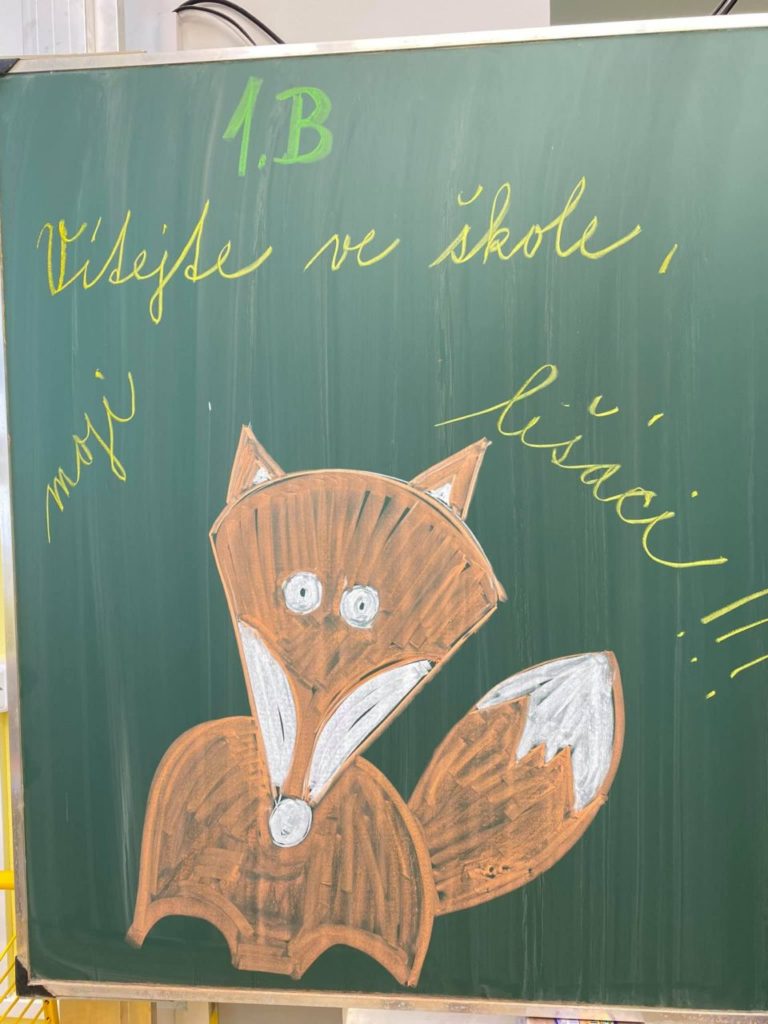 1.B
Vítejte ve škole,
moji lišáci!!!